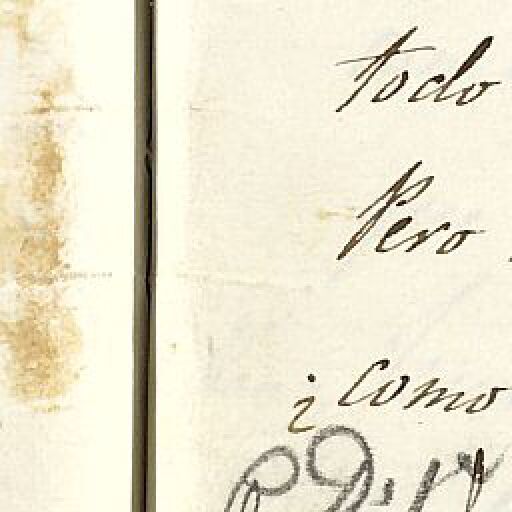 todo
Pero
¿como